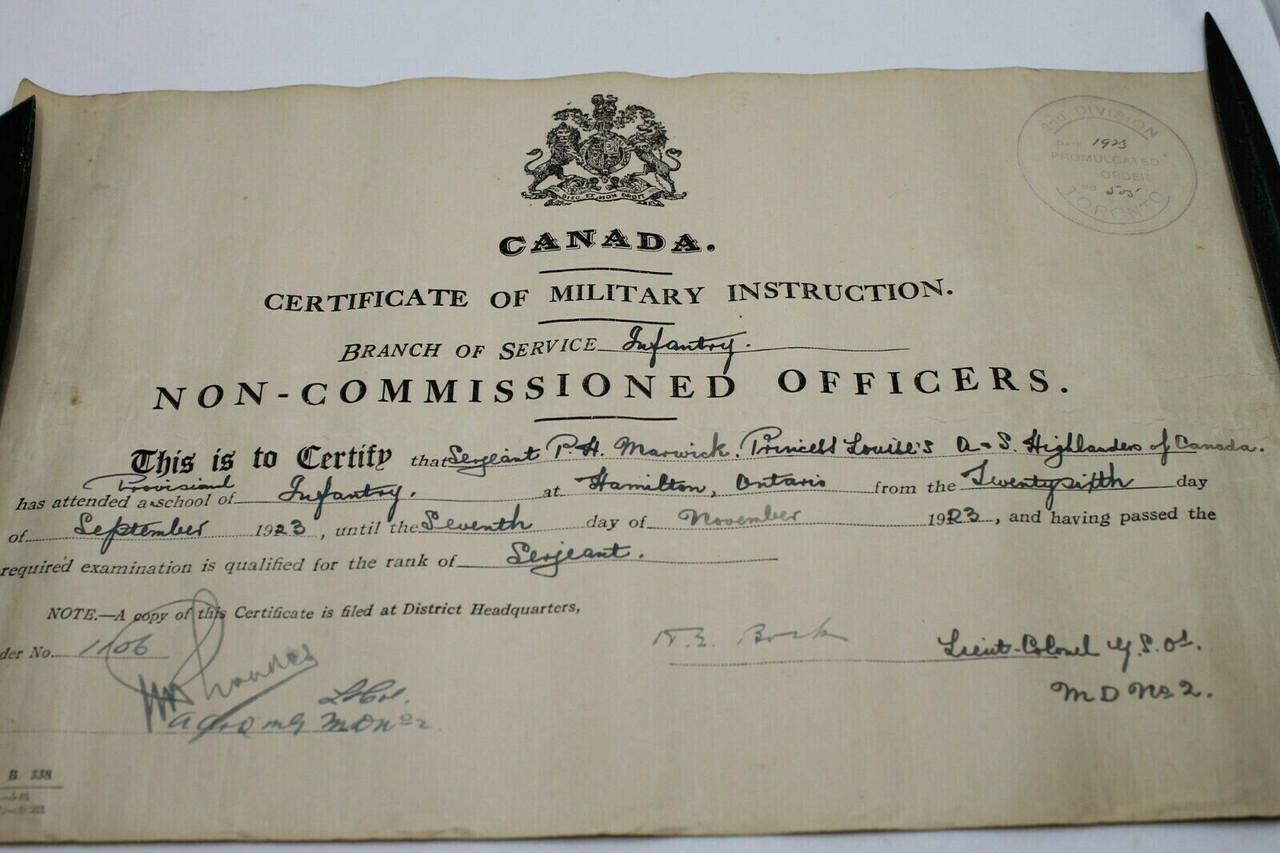 DIEU ET MON DROIT
2nd DIVISION
1923
PROMULGATED
ORDER
No 505
TORONTO
CANADA.
CERTIFICATE OF MILITARY INSTRUCTION.
BRANCH OF SERVICE Infantry.
NON-COMMISSIONED OFFICERS.
This is to Certify that Sergeant P.H. Marwick. Princess Louise's A & S. Highlanders of Canada.
Provisional
has attended a school of Infantry. at Hamilton, Ontario from the Twentysixth day
of September 1923, until the Seventh day of November 1923, and having passed the
required examination is qualified for the rank of Serjeant.
NOTE.—A copy of this Certificate is filed at District Headquarters,
der No. 1106
Lieut-Colonel G.S.O1.
M D No 2.
Rhoades
Lt Col.
M D No 2
B. 338